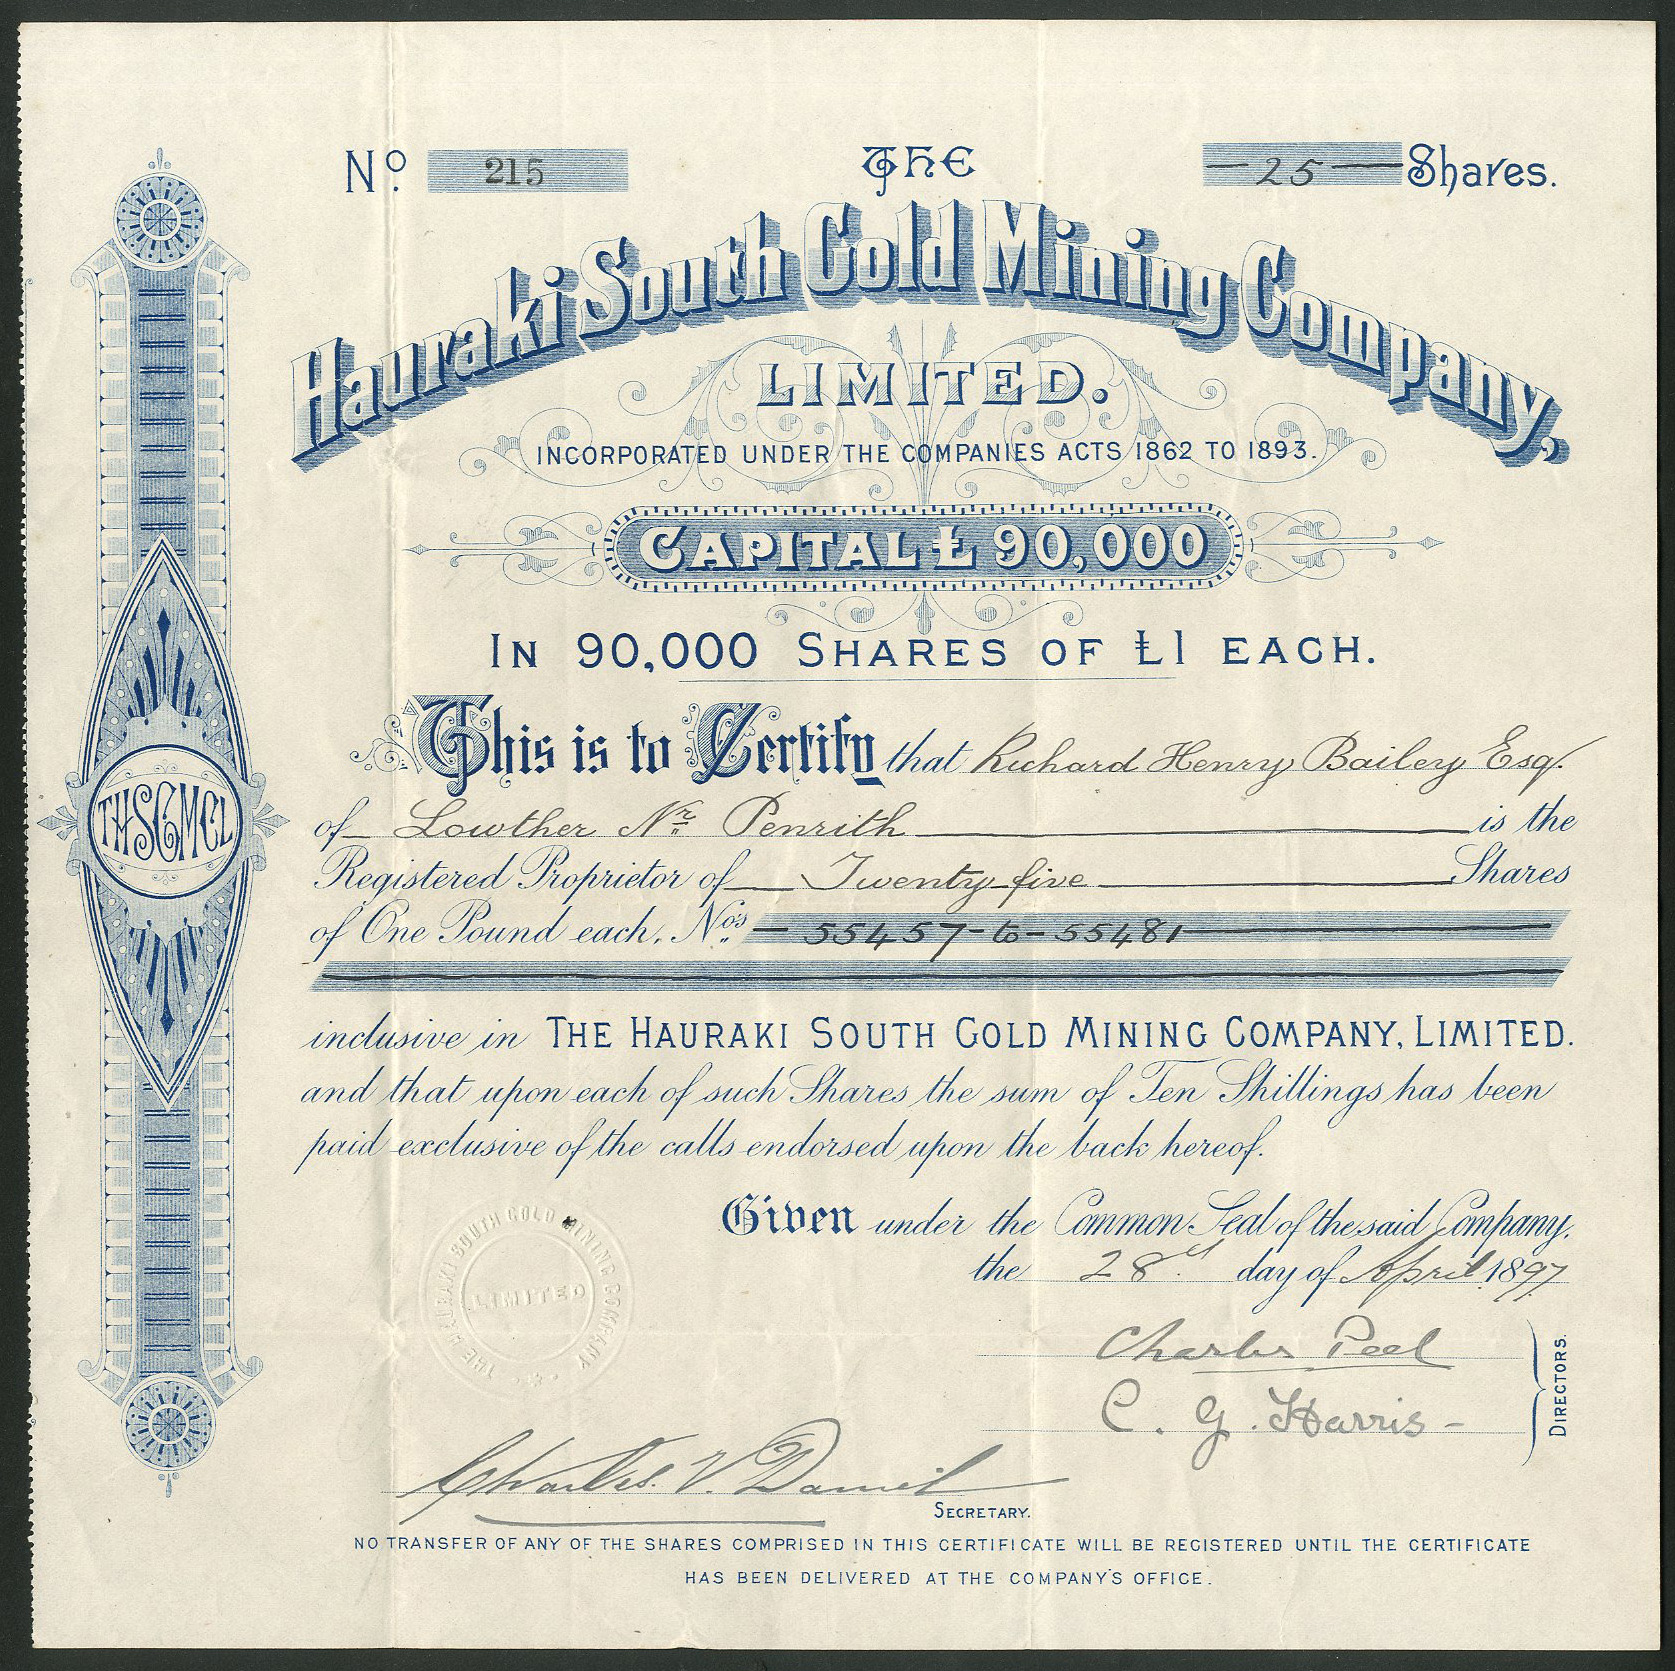 No. 215
THE
25 Shares.
Hauraki South Gold Mining Company,
LIMITED.
INCORPORATED UNDER THE COMPANIES ACTS 1862 TO 1893.
CAPITAL £ 90,000
IN 90,000 SHARES OF £1 EACH.
This is to Certify that Richard Henry Bailey Esq.
of Lowther Nr Penrith is the
Registered Proprietor of Twenty five Shares
of One Pound each, Nos. 55457 to 55481
THSGMCL
inclusive in THE HAURAKI SOUTH GOLD MINING COMPANY, LIMITED.
and that upon each of such Shares the sum of Ten Shillings has been
paid exclusive of the calls endorsed upon the back hereof.
Given under the Common Seal of the said Company,
the 28th day of April 1897
THE HAURAKI SOUTH GOLD MINING COMPANY
LIMITED
Charles Peel
C. G. Harris
DIRECTORS.
Charles. V. Daniel
SECRETARY.
NO TRANSFER OF ANY OF THE SHARES COMPRISED IN THIS CERTIFICATE WILL BE REGISTERED UNTIL THE CERTIFICATE
HAS BEEN DELIVERED AT THE COMPANY'S OFFICE.